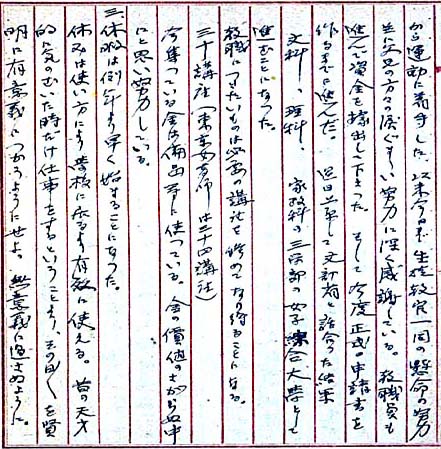 から運動に着手した。以来今日まで生徒教官一同の懸命の努力
並に父兄の方々の涙ぐましい努力に深く感謝している。教職員も
進んで資金を拠出して下さった。そして今度正式の申請書を
作るまでに進んだ。 過日上京して文部省と話合った結果
文科、理科、家政科の三学部の女子綜合大学として
進むことになった。
教職につきたいものは必要の講社を修めてなり得ることになる。
三十講社(東京女高師は二十四講社)
今集っている金は備品等に使っている。金の価値のさがらぬ中
にと思い努力している。
三、休暇は例年より早く始まることになった。
休みは使い方により学校に來るより有効に使える。昔の天才
的に気のむいた時だけ仕事をするということなく、その日くを賢
明に有意義につかうようにせよ。無意義に過さぬように。